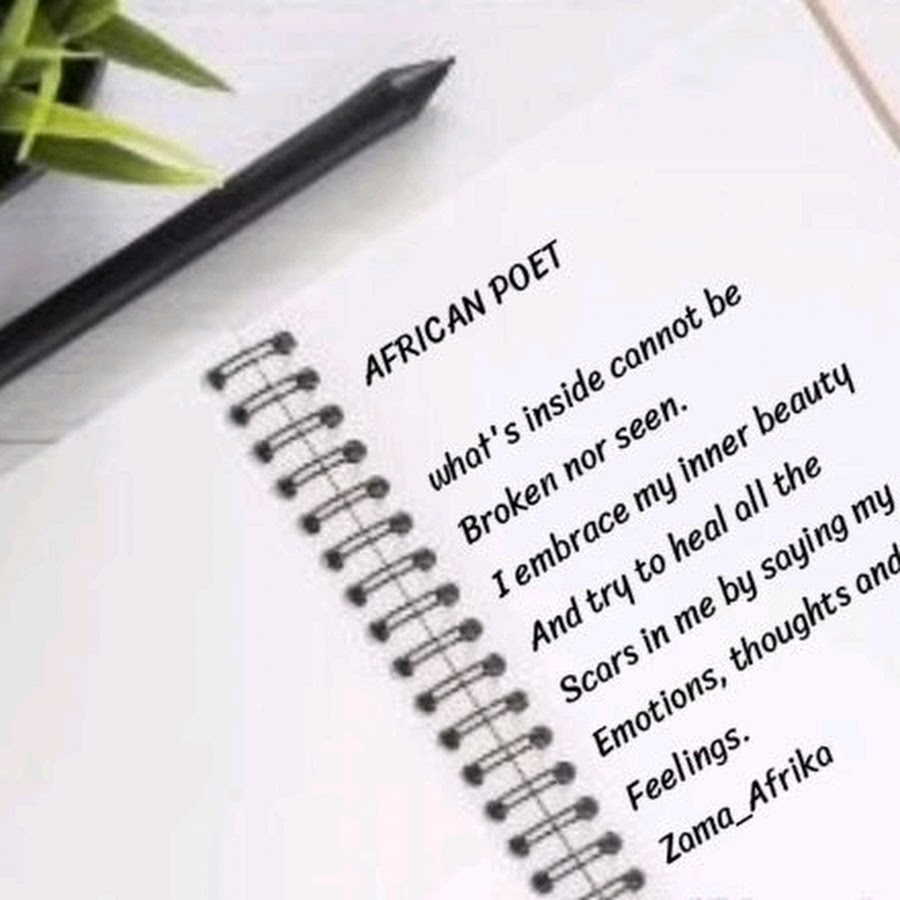 AFRICAN POET
what's inside cannot be
Broken nor seen.
I embrace my inner beauty
And try to heal all the
Scars in me by saying my
Emotions, thoughts and
Feelings.
Zama_Afrika